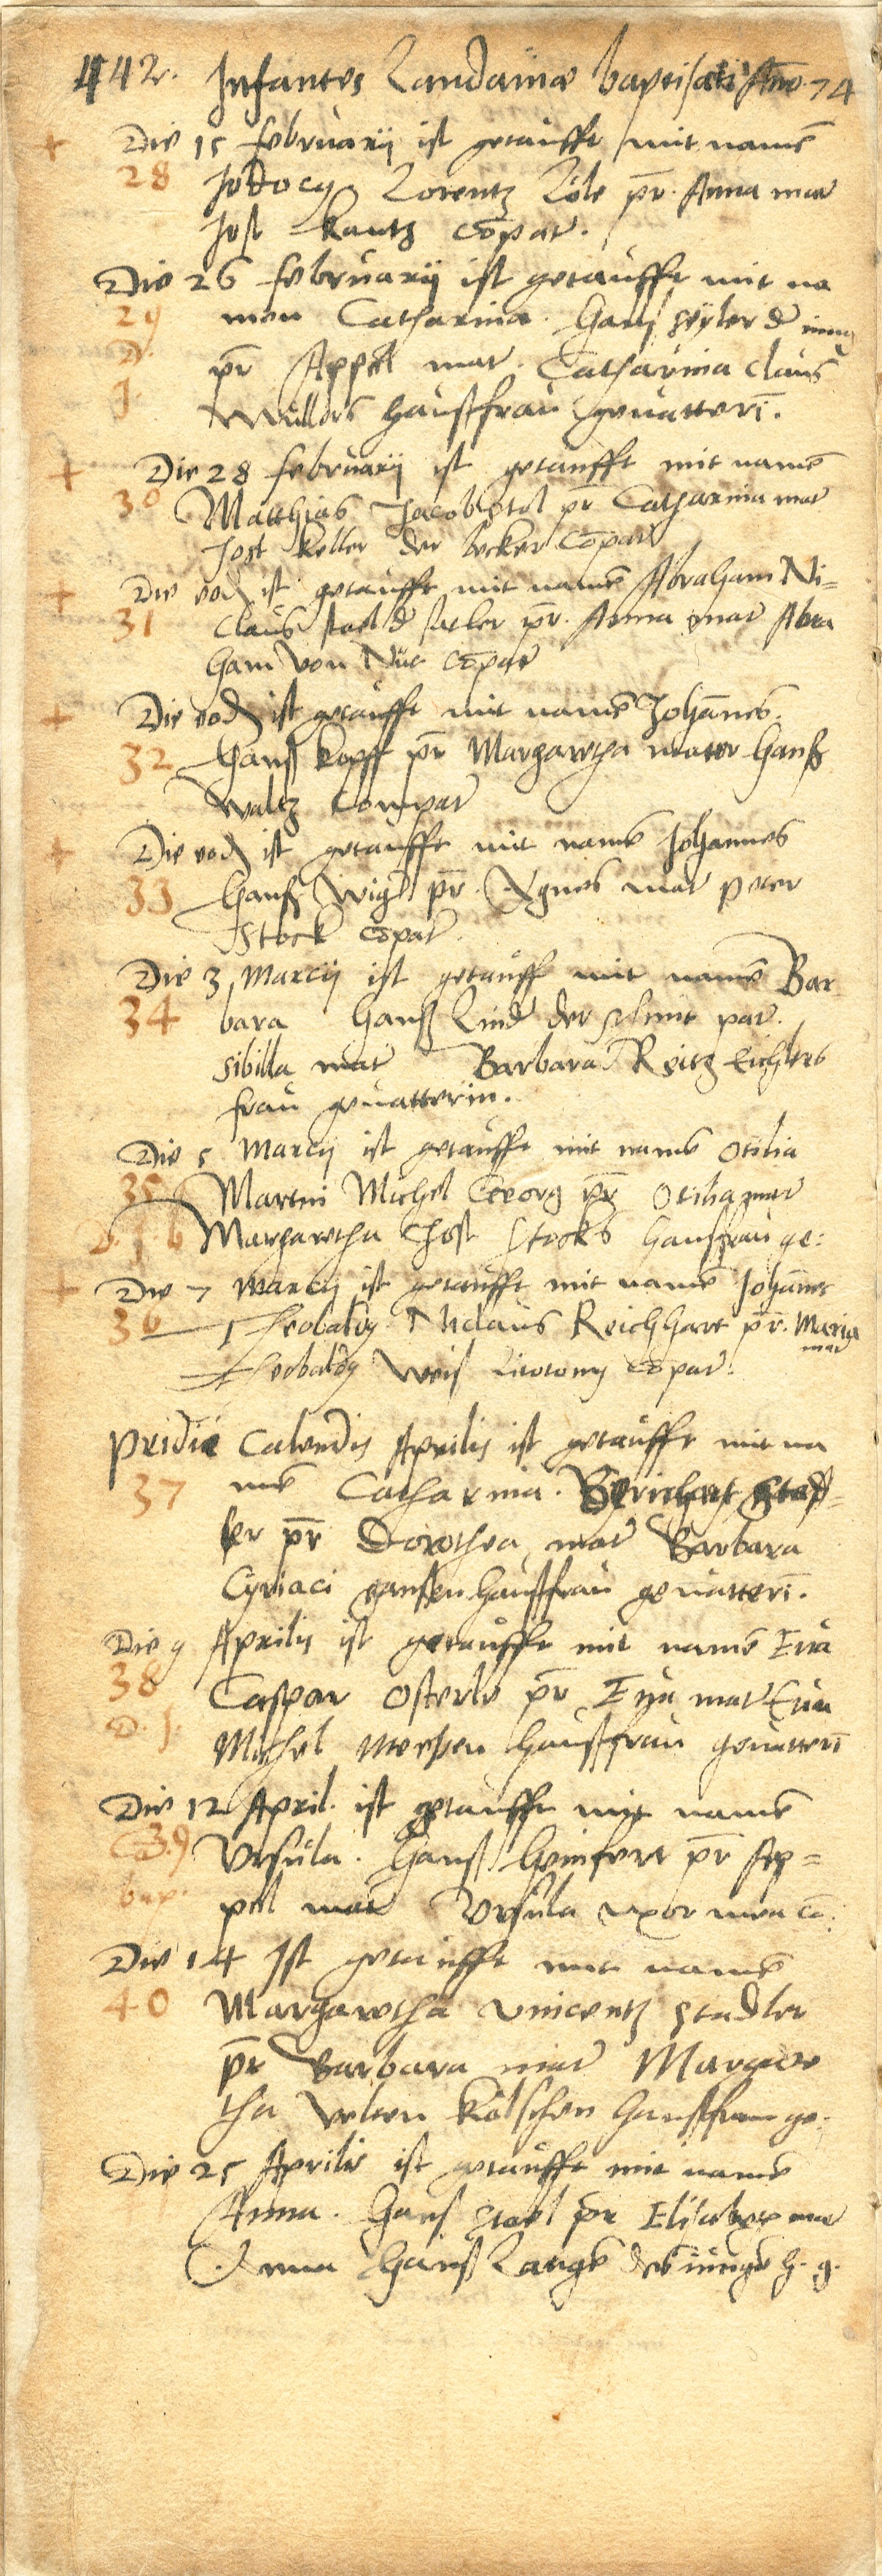 442. Infantes Landauiæ baptisati Año. 74
+ Die 15 februarij ist getaufft mit namē
28 Jodocus Lorentz Löle pr̄. Anna mat̄
Jost Kantz cōpat̄.
Die 26 februarij ist getaufft mit na
29 men Catharina. Hans seyler d̄ iung
D. pr̄ Appel mat̄. Catharina Claus
J. Müllers haussfrau geuatterī.
+ Die 28 februarij ist getaufft mit namē
30 Matthias Jacob pr̄ Catharina mat̄
Jost Keller der becker cōpat̄
+ Die eod ist getaufft mit namē Abraham Ni=
31 claus d̄ pr̄. Anna mat̄ Abra
ham von cōpat̄
+ Die eod ist getaufft mit namē Johañes.
32 Hanß Kopff pr̄ Margaretha mater Hanß
Waltz Compat̄
+ Die eod ist getaufft mit namē Johannes
33 Hanß Wigel pr̄. Agnes mat̄ peter
Stock cōpat̄.
Die 3 Marcij ist getauff mit namē Bar
34 bara Hanß Lind der schmit pat̄.
Sibilla mat̄ Barbara Reitz
frau geuatterin.
Die 5 Marcij ist getaufft mit namē Otilia
35 Martin Michel Georg pr̄ Otilia mat̄
D. J. b Margaretha Jost Stocks haussfrau ge:
+ Die 7 Marcij ist getaufft mit namē Johañes
36 Theobaldus Niclaus Reichhart pr̄. Maria
mat̄
Theobaldus Weis cōpat̄.
Pridie Calendis Aprilis ist getaufft mit na
37 mē Catharina.
ler pr̄ Dorothea mat̄ Barbara
Cyriaci haussfrau geuatterī.
Die 9 Aprilis ist getaufft mit namē Eua
38 Caspar Osterle pr̄ Eua mat̄ Eua
D. J. Michel haussfrau geuatterī
Die 12 April. ist getaufft mit namē
39 Vrsula. Hanß pr̄ Ap=
bap. pel mat̄ Vrsula vxor mea cō:
Die 14 Ist getaufft mit namē
40 Margaretha Vincentz Stadler
pr̄ Barbara mat̄ Margare
tha Velten Kölschen haussfrau ge.
Die 25 Aprilis ist getaufft mit namē
Anna. Hans pr̄ Elisabet mat̄
Anna Hanß Langē des iungē h. g.